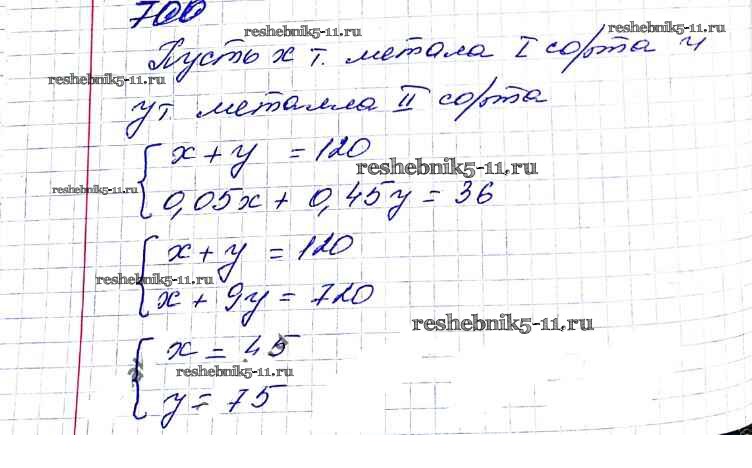 700
reshebnik5-11.ru
reshebnik5-11.ru
Пусть x т. метала I сорта и
reshebnik5-11.ru
y т. металла II сорта
x + y = 120
reshebnik5-11.ru
reshebnik5-11.ru
0,05x + 0,45y = 36
x + y = 120
reshebnik5-11.ru
x + 9y = 720
reshebnik5-11.ru
x = 45
reshebnik5-11.ru
y = 75